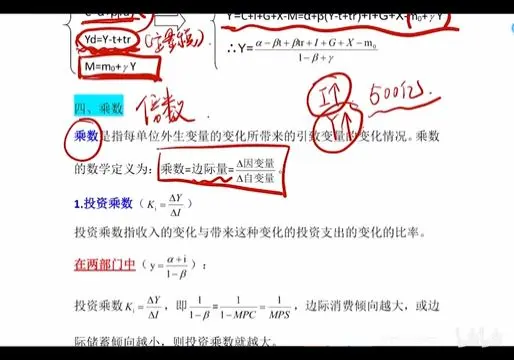 Yd=Y-t+tr (定量税)
M=m₀+γY
Y=C+I+G+X-M=α+β(Y-t+tr)+I+G+X-m₀-γY
∴Y=(α-βt+βtr+I+G+X-m₀)/(1-β+γ)
四、乘数 倍数
I↑ 500亿
Y↑
乘数是指每单位外生变量的变化所带来的引致变量的变化情况。乘数
的数学定义为：乘数=边际量=Δ因变量/Δ自变量。
1.投资乘数（Kᵢ=ΔY/ΔI）
投资乘数指收入的变化与带来这种变化的投资支出的变化的比率。
在两部门中（y=(α+i)/(1-β)）：
投资乘数Kᵢ=ΔY/ΔI，即1/(1-β)=1/(1-MPC)=1/MPS，边际消费倾向越大，或边
际储蓄倾向越小，则投资乘数就越大。